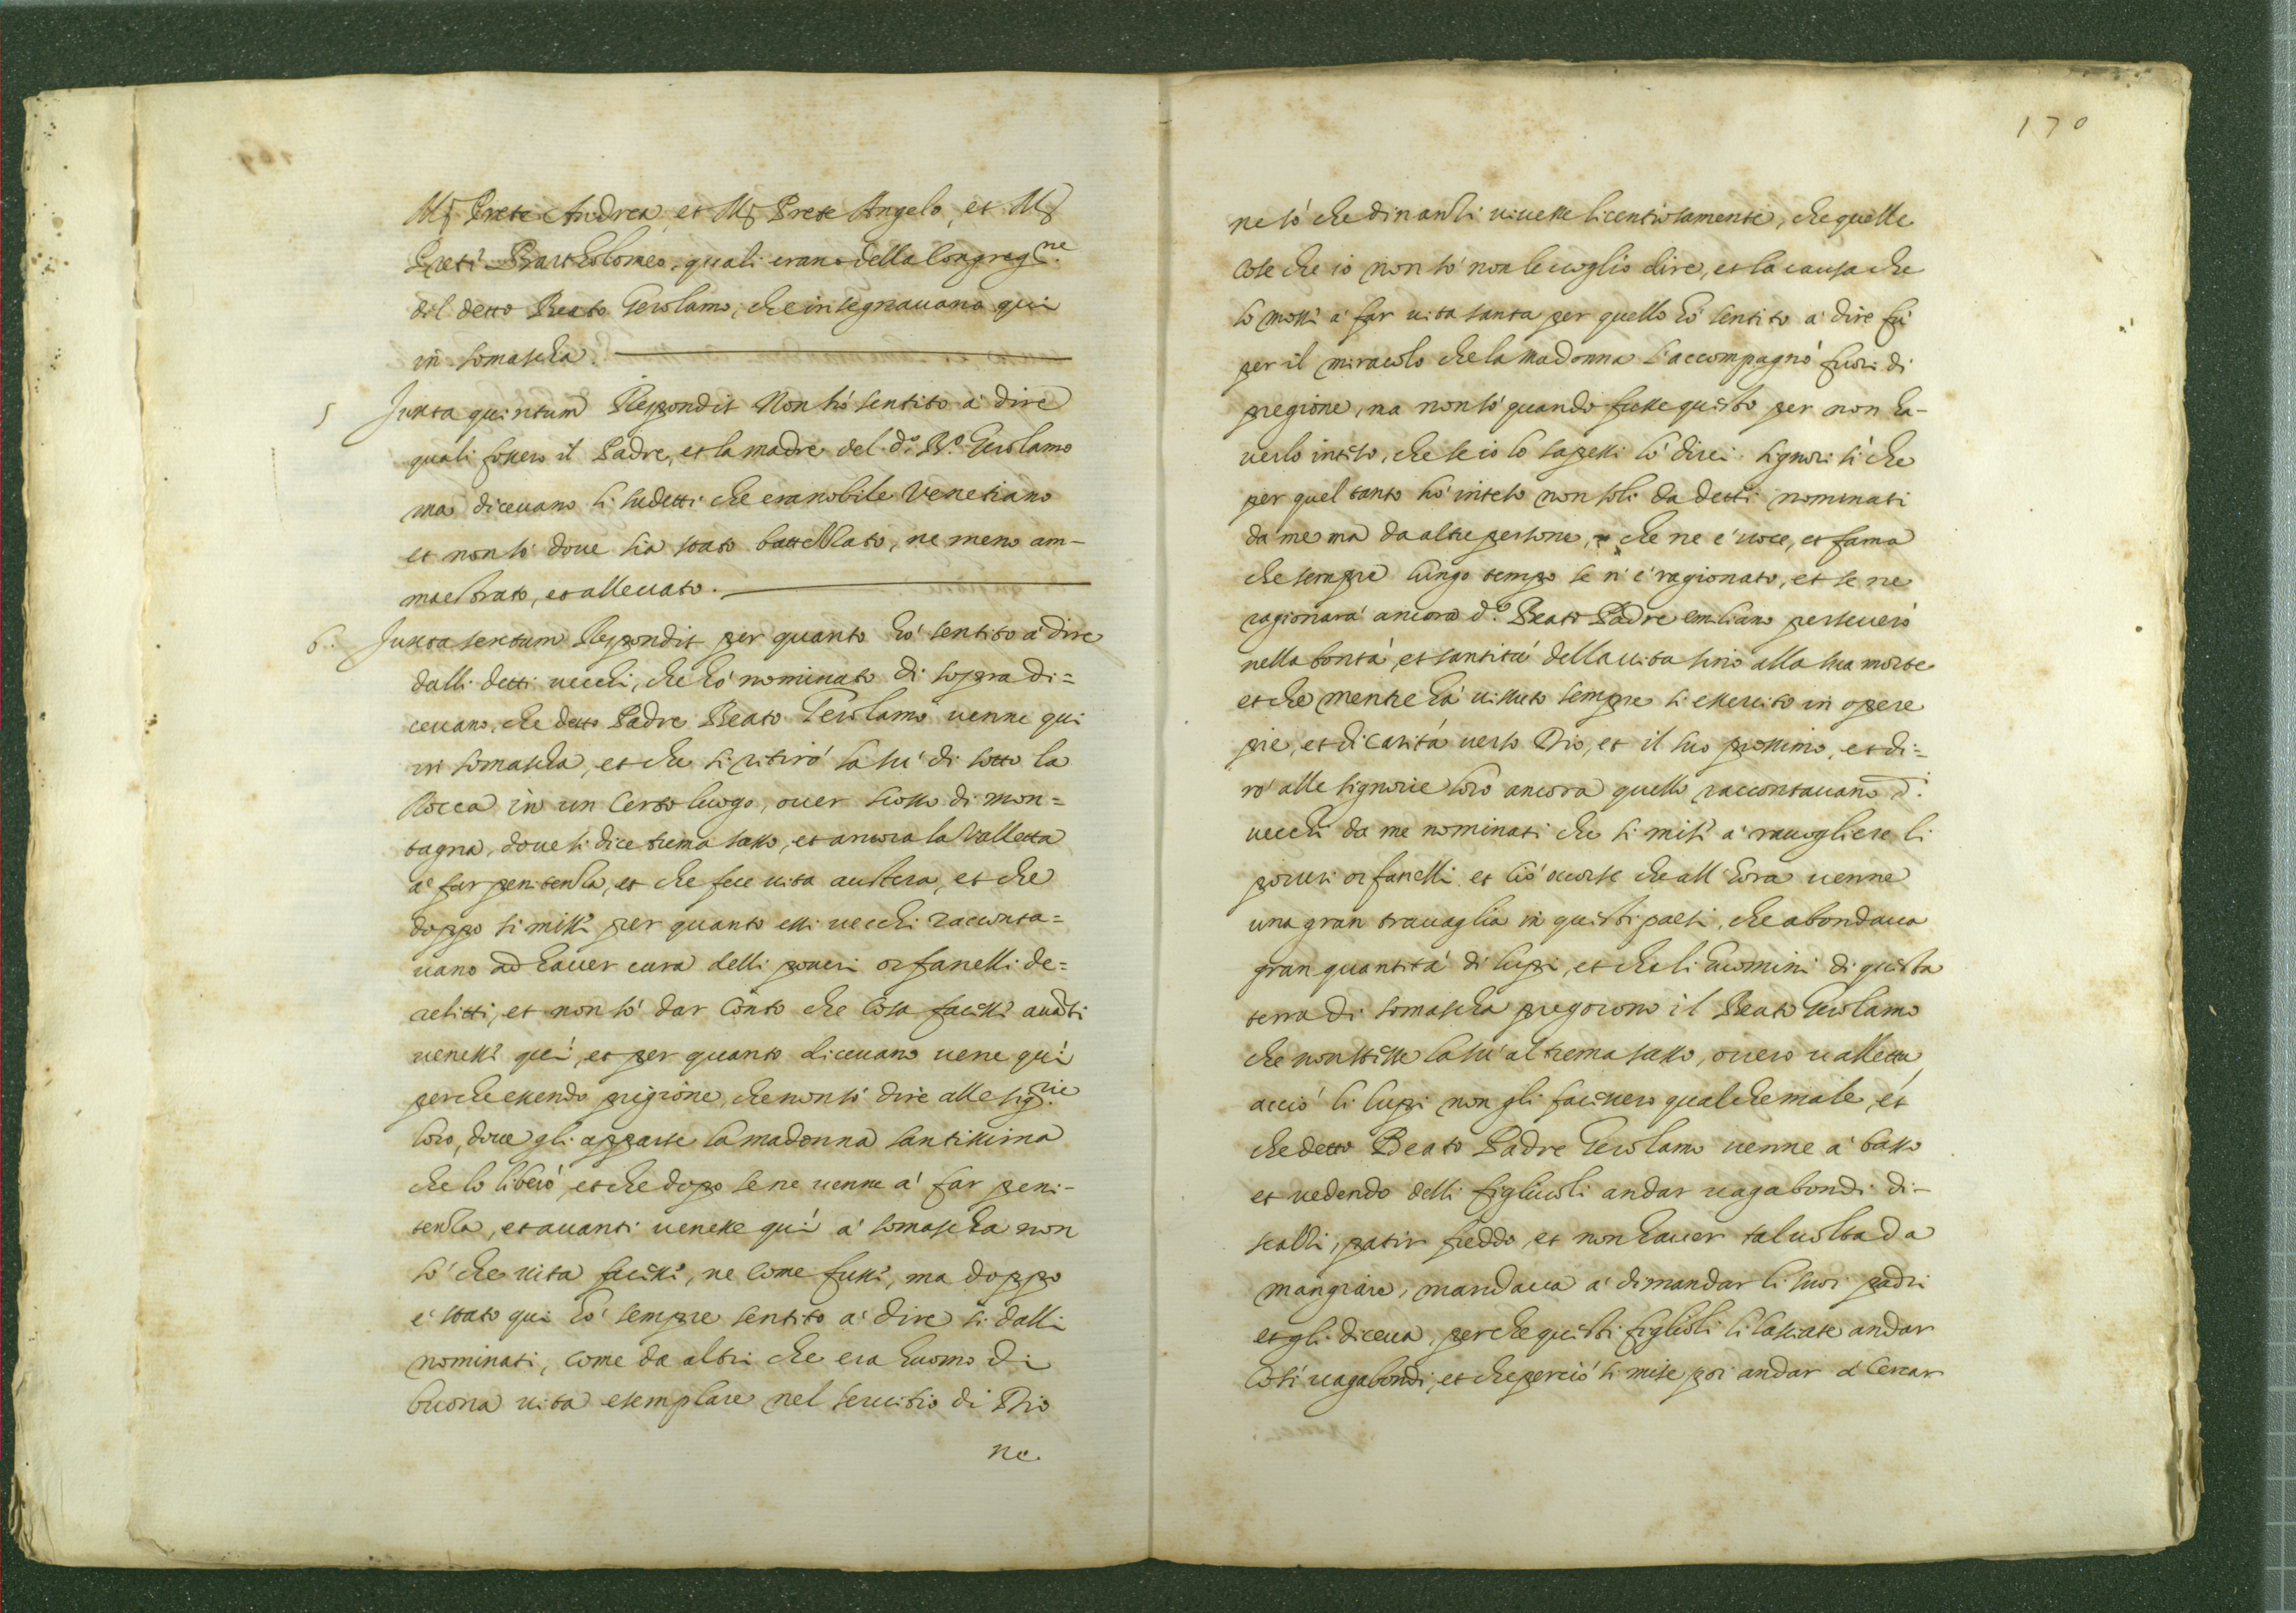 Mſ Prete Andrea, et Mſ Prete Angelo, et Mſ
Preti Bartholomeo, quali erano della Congreg.ne
del detto Beato Gerolamo, che insegnauano qui
in somascha.
5 Juxta quintum Respondit Non hò sentito à dire
quali fossero il Padre, et la madre del d.o B.o Gerolamo
ma diceuano li sudetti che era nobile Venetiano
et non sò doue sia stato battezzato, ne meno am-
maestrato, et alleuato.
6. Juxta sextum Respondit per quanto hò sentito à dire
dalli detti uecchi, che hò nominato di sopra di=
ceuano, che detto Padre Beato Gerolamo uenne qui
in somascha, et che si ritirò la sù di sotto la
Rocca in un certo luogo, ouer scosso di mon=
tagna, doue si dice trema sasso, et ancora la Valletta
à far penitenza, et che fece uita austera, et che
doppo si missi per quanto essi uecchi racconta=
uano ad hauer cura delli poueri orfanelli de=
relitti, et non sò dar conto che cosa facessi auãti
uenessi quì, et per quanto diceuano uene quì
perche essendo prigione, che non sò dire alle sig.rie
loro, doue gli apparse la madonna santissima
che lo liberò, et che dopo se ne uenne à far peni-
tenza, et auanti uenesse quì à somascha non
sò che uita facessi, ne come fussi, ma doppo
è stato qui hò sempre sentito à dire si dalli
nominati, come da altri che era huomo di
buona uita esemplare nel seruitio di Dio
ne
170
ne sò che dinanzi uiuesse licentiosamente, che quelle
cose che io non sò non le uoglio dire, et la causa che
lo mossi à far uita santa per quello hò sentito à dire fù
per il miracolo che la madonna l'accompagnò fuori di
pregione, ma non sò quando fusse questo per non ha-
uerlo inteso, che se io lo sapessi lo direi. signori si che
per quel tanto hò inteso non soli da detti nominati
da me ma da altre persone, che ne è uoce, et fama
che sempre lungo tempo se n'è ragionato, et se ne
ragionarà ancora d.o Beato Padre emiliano perseuerò
nella bontà, et santità della uita sino alla sua morte
et che mentre hà uissuto sempre si essercitò in opere
pie, et di carità uerso Dio, et il suo prossimo, et di=
rò alle signorie loro ancora quello raccontauano d.i
uecchi da me nominati che si misi à raccogliere li
poueri orfanelli et ciò occorse che all'hora uenne
una gran trauaglia in questi paesi, che abondaua
gran quantità di lupi, et che li huomini di questa
terra di somascha pregorono il Beato Gerolamo
che non stesse la sù al trema sasso, ouero ualletta,
acciò li lupi non gli facessero qualche male, et
che detto Beato Padre Gerolamo uenne à basso
et uedendo delli figliuoli andar uagabondi di-
scalzi, patir freddo, et non hauer tal uolta da
mangiare, mandaua à dimandar li suoi padri
et gli diceua, perche questi figlioli li lassate andar
così uagabondi, et che perciò si mise poi andar à cercar